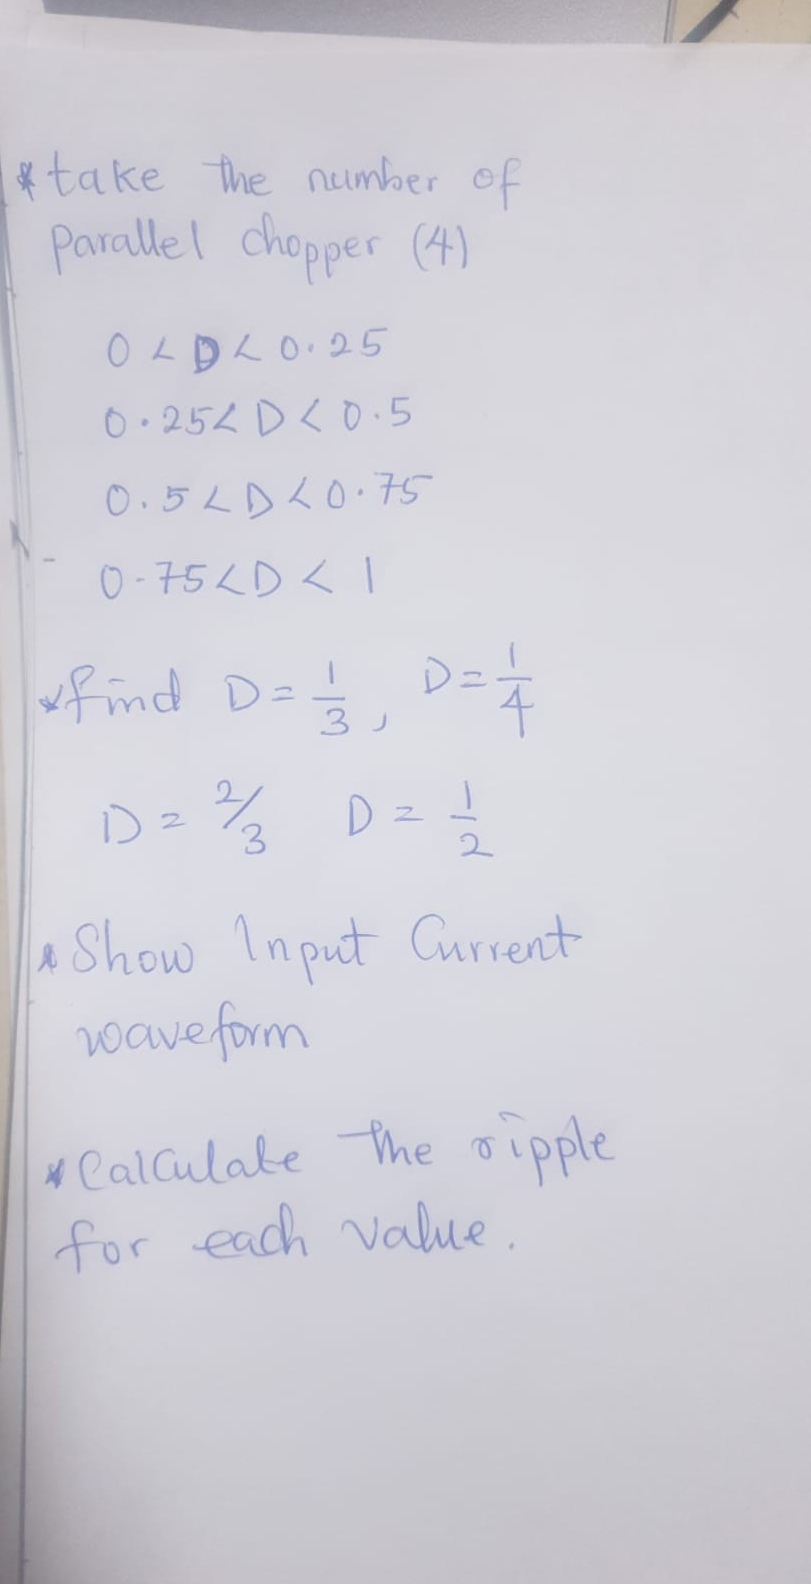 * take the number of
parallel chopper (4)
0 < D < 0.25
0.25 < D < 0.5
0.5 < D < 0.75
0.75 < D < 1
* find D = 1/3, D = 1/4
D = 2/3 D = 1/2
* Show Input Current
waveform
* Calculate the ripple
for each value.